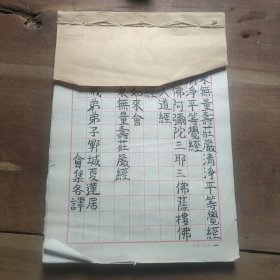 來無量壽莊嚴清淨平等覺經
淨平等覺經
佛阿彌陀三耶三佛薩樓佛
人道經
經
如來會
來無量壽莊嚴經
戒弟弟子鄆城夏蓮居
會集各譯